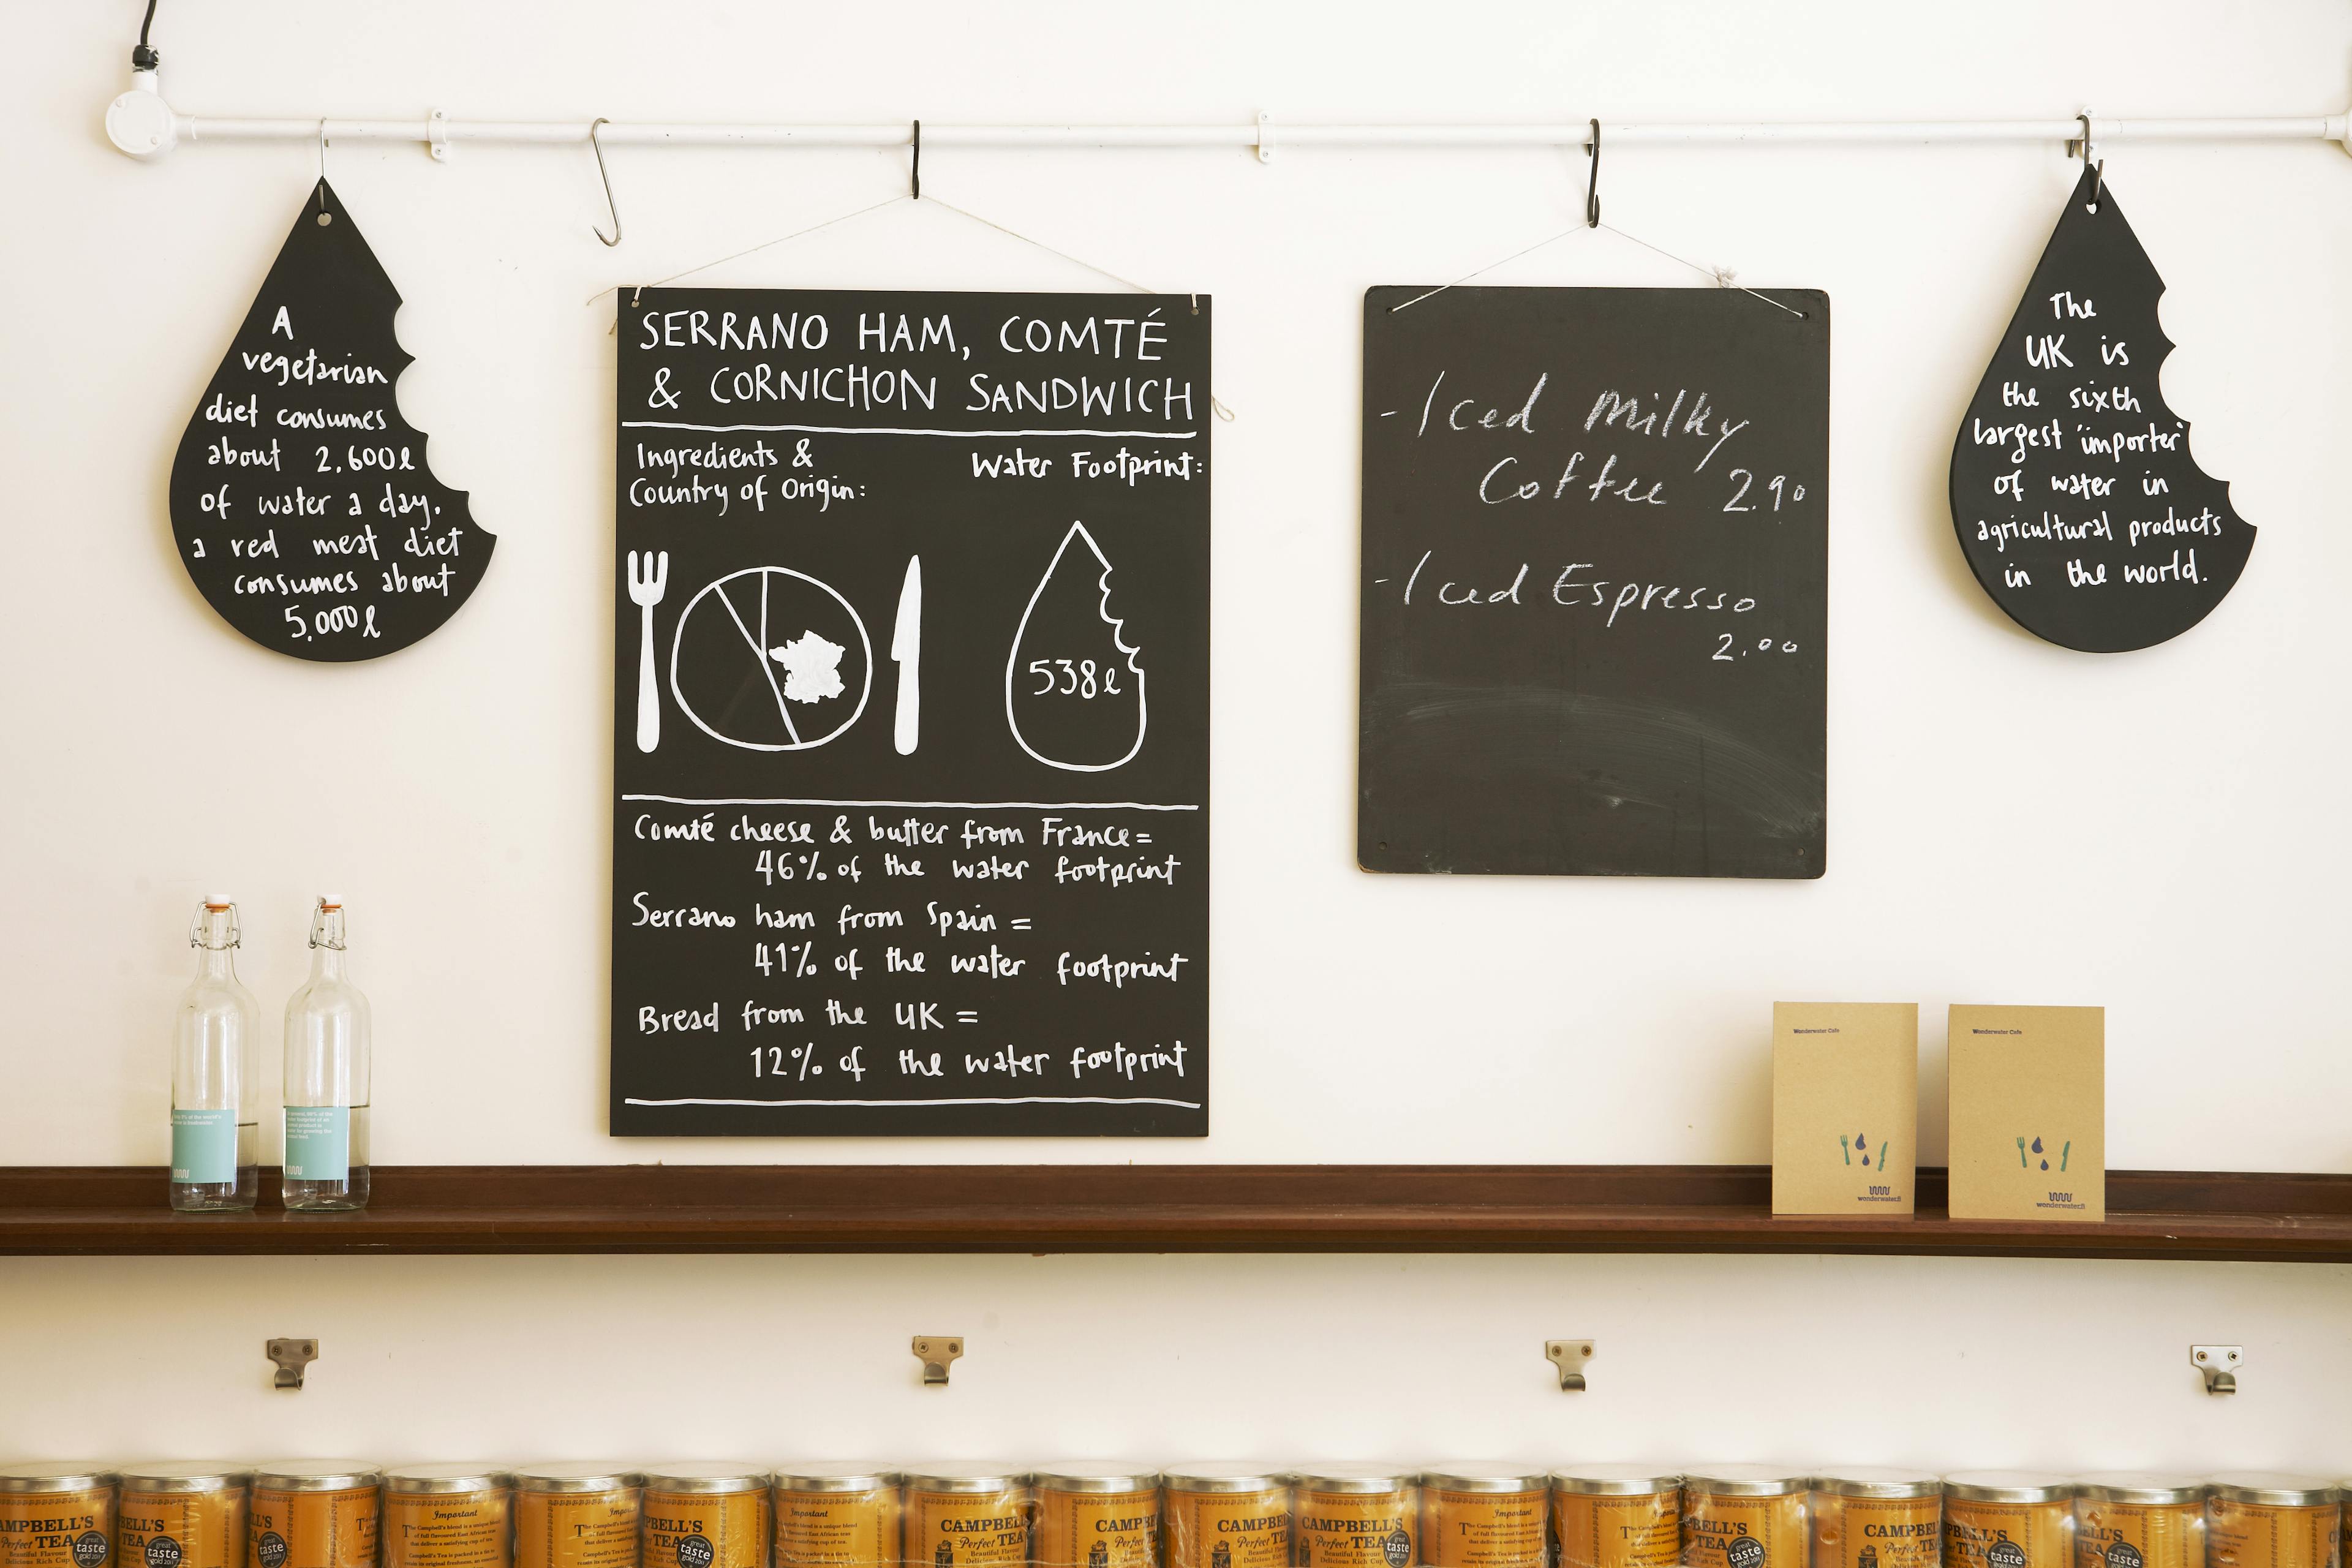 A
vegetarian
diet consumes
about 2,600l
of water a day.
a red meat diet
consumes about
5,000l
SERRANO HAM, COMTÉ
& CORNICHON SANDWICH
Ingredients &
Country of Origin:
Water Footprint:
538l
Comté cheese & butter from France =
46% of the water footprint
Serrano ham from Spain =
41% of the water footprint
Bread from the UK =
12% of the water footprint
- Iced Milky
Coffee 2.90
- Iced Espresso
2.00
The
UK is
the sixth
largest 'importer'
of water in
agricultural products
in the world.
Wonderwater Cafe
wonderwater.fi
Wonderwater Cafe
wonderwater.fi
CAMPBELL'S
Perfect TEA
great
taste
gold
Important
CAMPBELL'S
Perfect TEA
Beautiful Flavour
Delicious Rich Cup